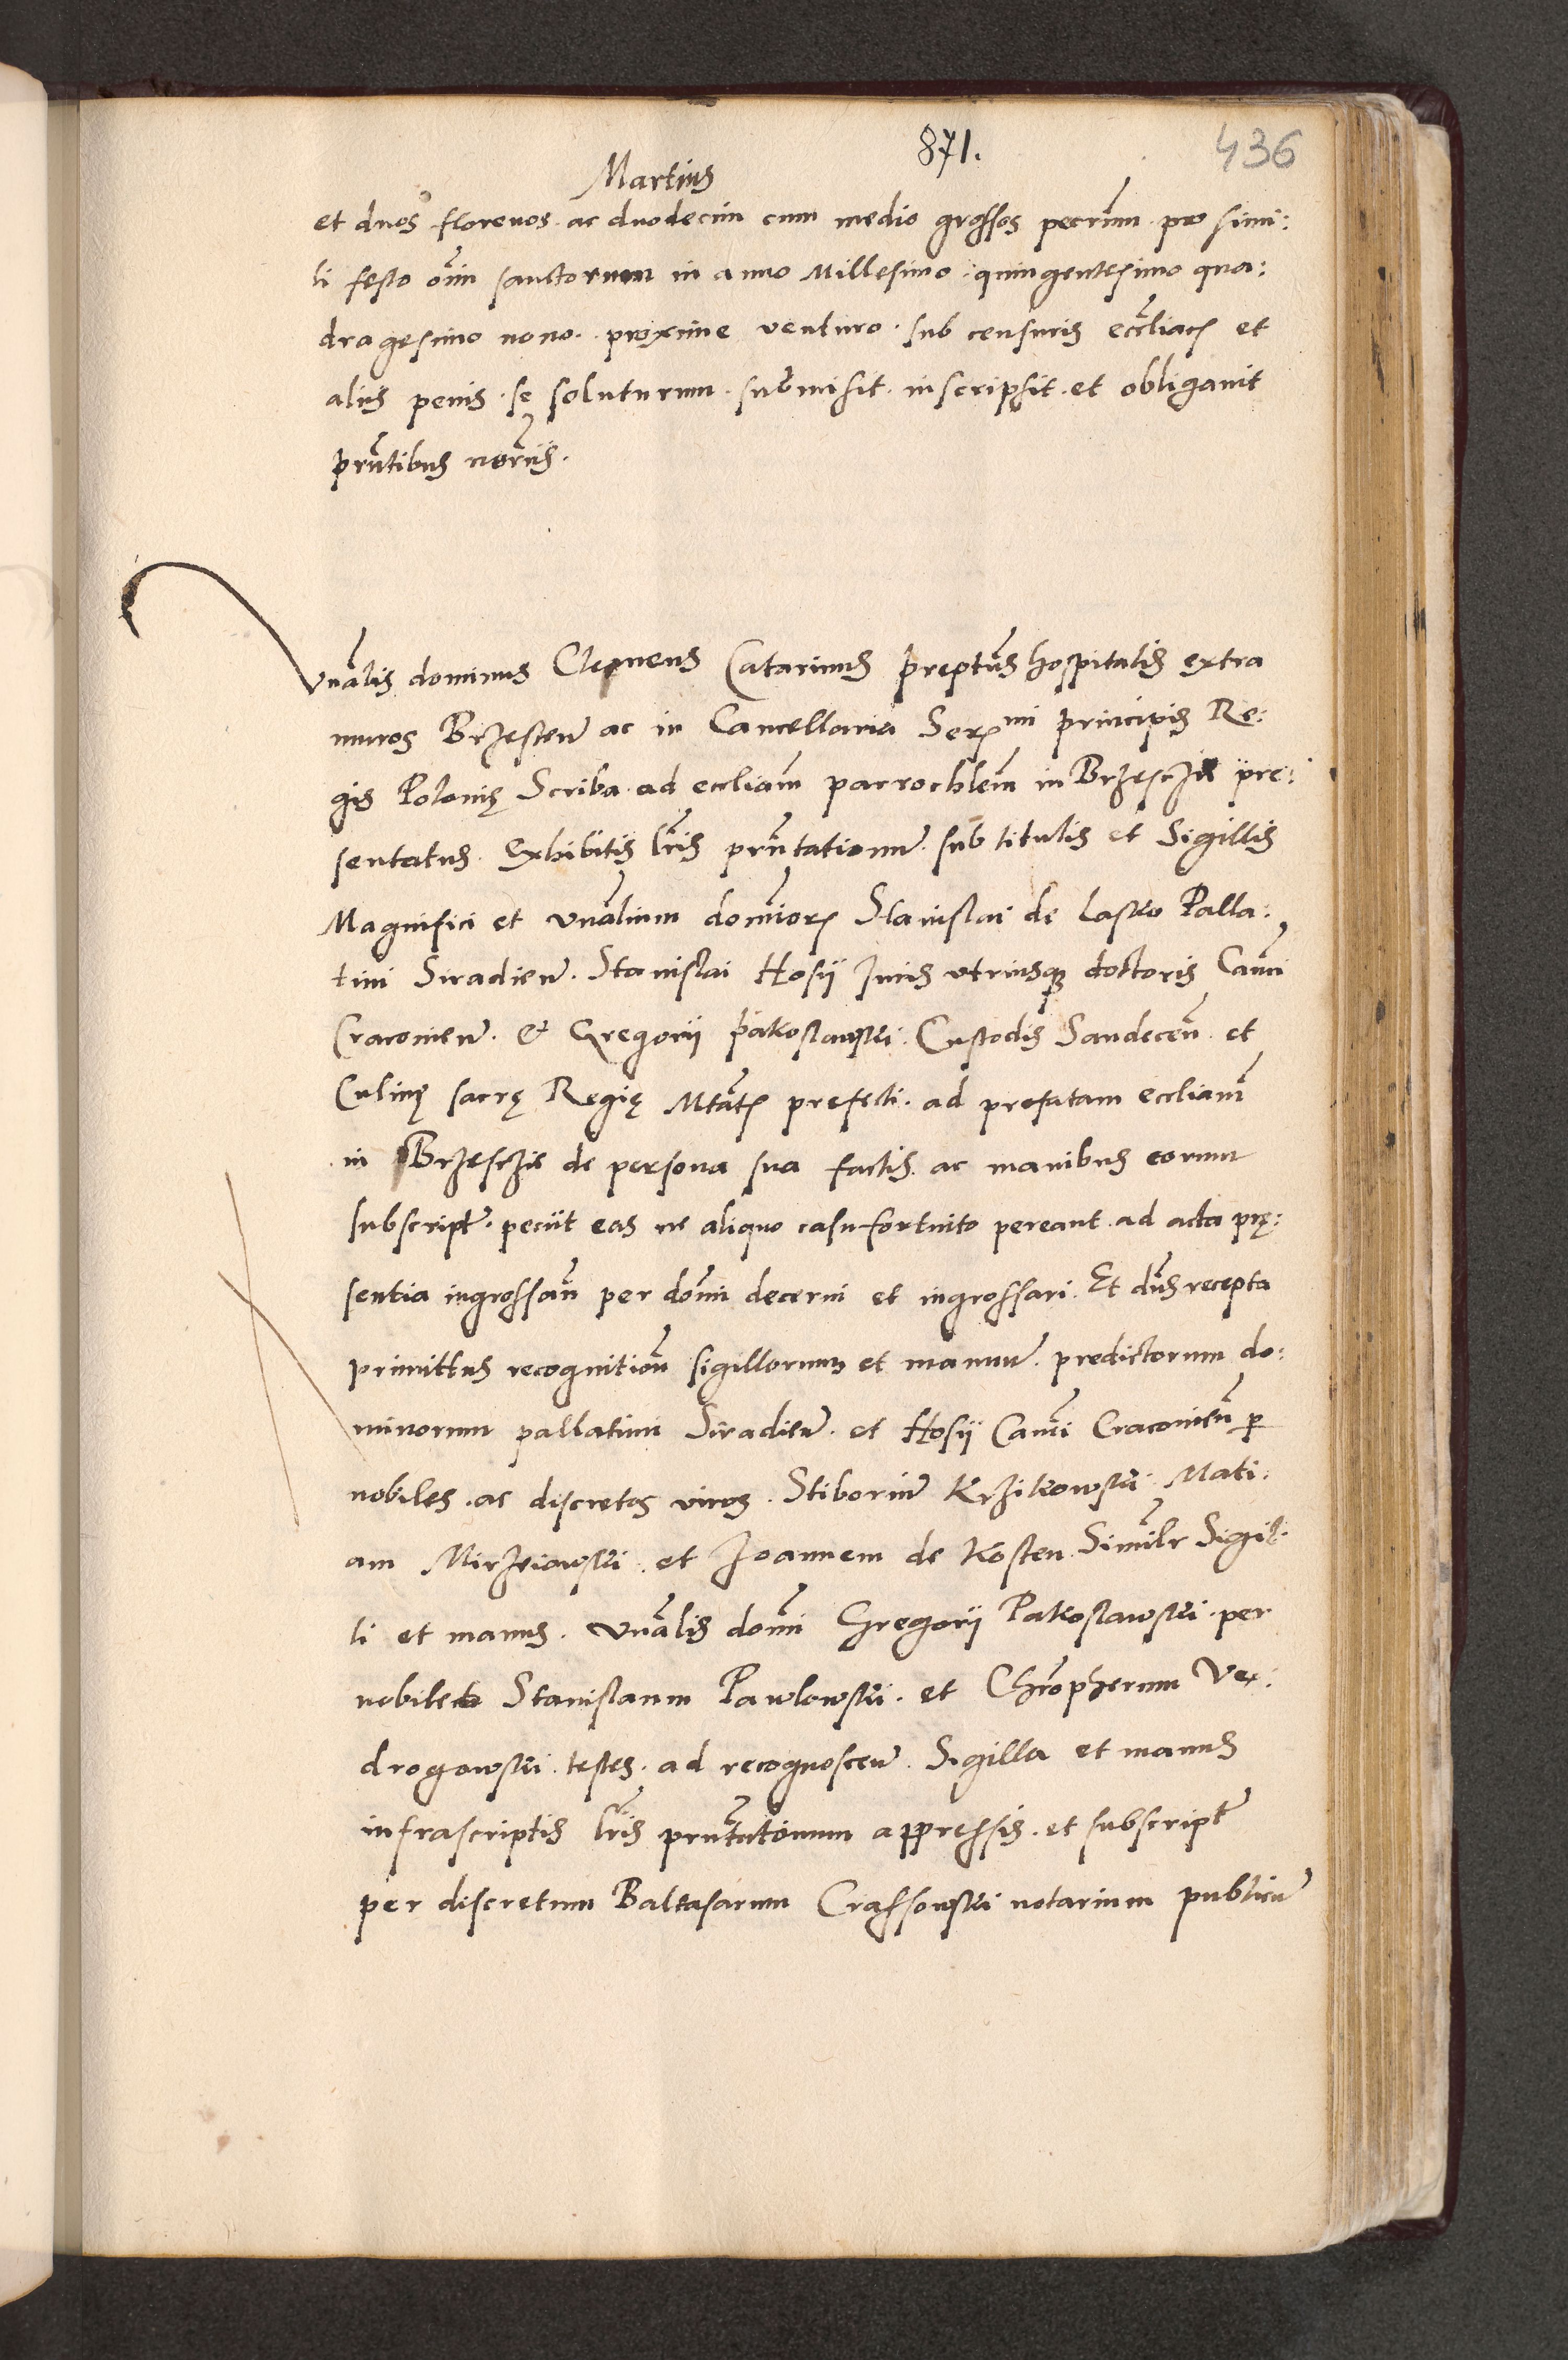 871.
436
Martius
et duos florenos ac duodecim cum medio grossos pecunm̃ pro simi:
li festo oim̃ sanctorum in anno Millesimo quingentesimo qua:
dragesimo nono. proxime venturo. sub censuris eccliacis et
aliis penis. se soluturum. submisit. inscripsit. et obligavit
pñtibus noriis.
Vnãlis dominus Clemens Catarinus preptus hospitalis extra
muros Brzesteñ ac in Cancellaria Sermi principis Re:
gis Polonię Scriba ad eccliam parrochlem in Brzescziе pre:
sentatus. Exhibitis lris pñtationum sub titulis et Sigillis
Magnifici et vnãlium dominor Stanislai de Lasko Palla:
tini Siradieñ. Stanislai Hosii Juris vtriusq doctoris Canci
Cracovieñ. & Gregorii Pakoslawski. Custodis Sandeceñ. et
Culinę sacrę Regię Mtatis prefecti. ad prefatam eccliam
in Brzesczie de persona sua factis. ac manibus eorum
subscript. peciit eas ne aliquo casu fortuito pereant. ad acta prę:
sentia ingrossañ per domi decerni et ingrossari. Et dñs recepta
primittus recognitioñ sigillorum et manuũ. predictorum do:
minorum pallatini Siradieñ. et Hosii Canci Cracovieñ p
nobiles. ac discretos viros. Stiboriũ Krzikowski. Mati:
am Mirzeiowski. et Joannem de Kosten. Similr Sigil:
li et manus. Vnãlis domi Gregorii Pakoslawski. per
nobiles Stanislaum Pawlowski. et Chrophorum Ve:
drogowski. testes. ad recognosceñ. Sigilla et manus
infrascriptis lris pñtationum appressis. et subscript
per discretum Baltasarum Crassowski notarium publicũ